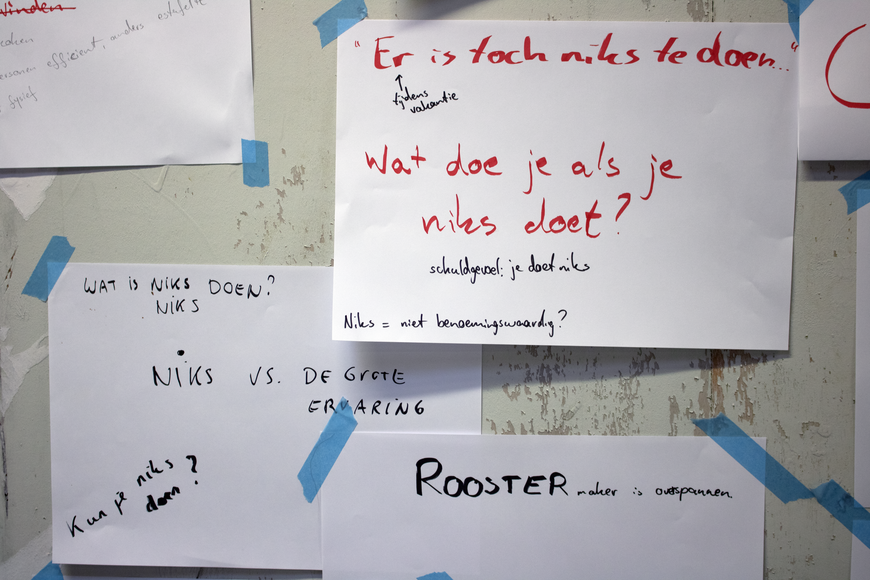 vinden
efficient, anders
fysiek
"Er is toch niks te doen..."
tijdens
vakantie
Wat doe je als je
niks doet?
schuldgevoel: je doet niks
Niks = niet benoemingswaardig?
WAT IS NIKS DOEN?
NIKS
NIKS VS. DE GROTE
ERVARING
Kun je niks
doen?
ROOSTER maker is overspannen